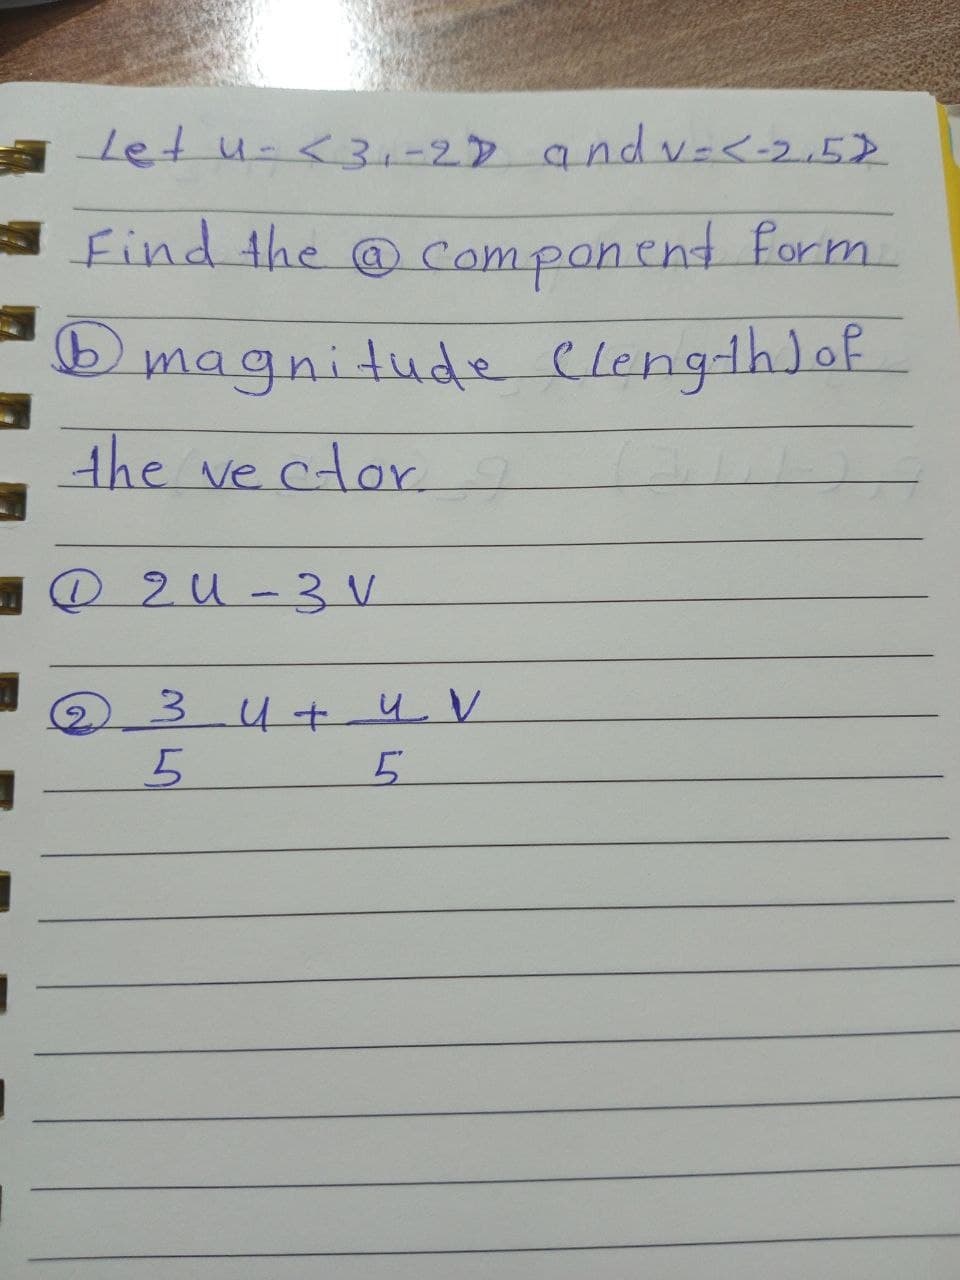 Let u = <3, -2> and v = <-2, 5>
Find the ⓐ component form
ⓑ magnitude (length) of
the vector.
① 2u - 3v
② 3/5 u + 4/5 v